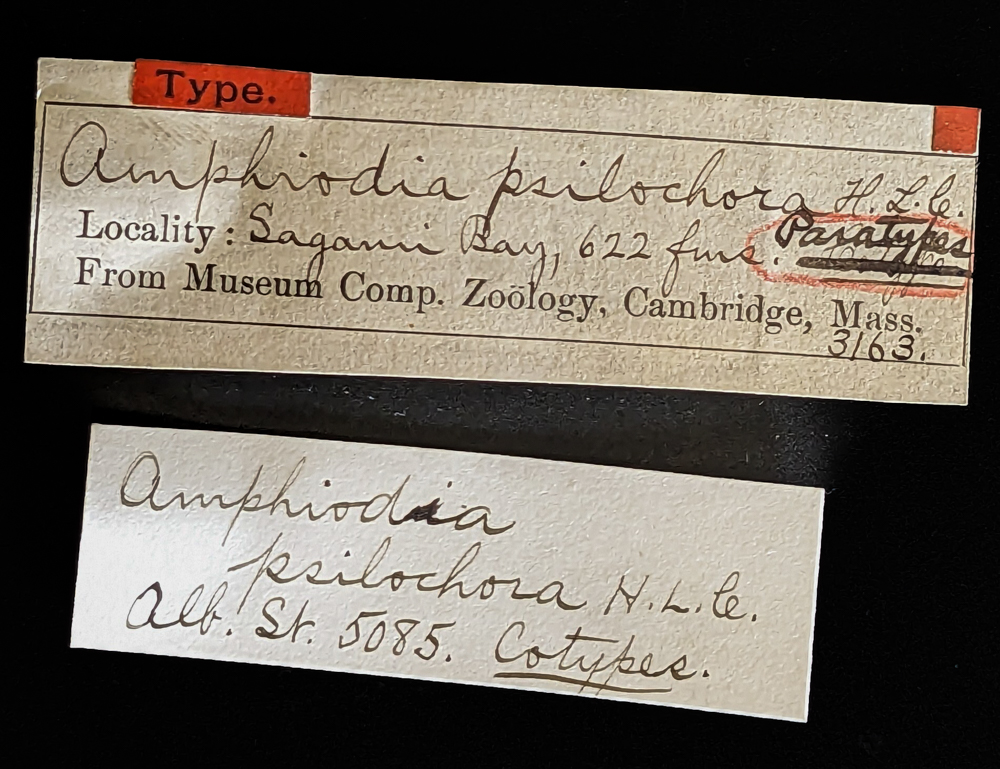 Type.
Amphiodia psilochora H. L. C.
Paratypes
Locality: Sagami Bay, 622 fms.
From Museum Comp. Zoölogy, Cambridge, Mass.
3163.
Amphiodia
psilochora H. L. C.
Alb. St. 5085. Cotypes.